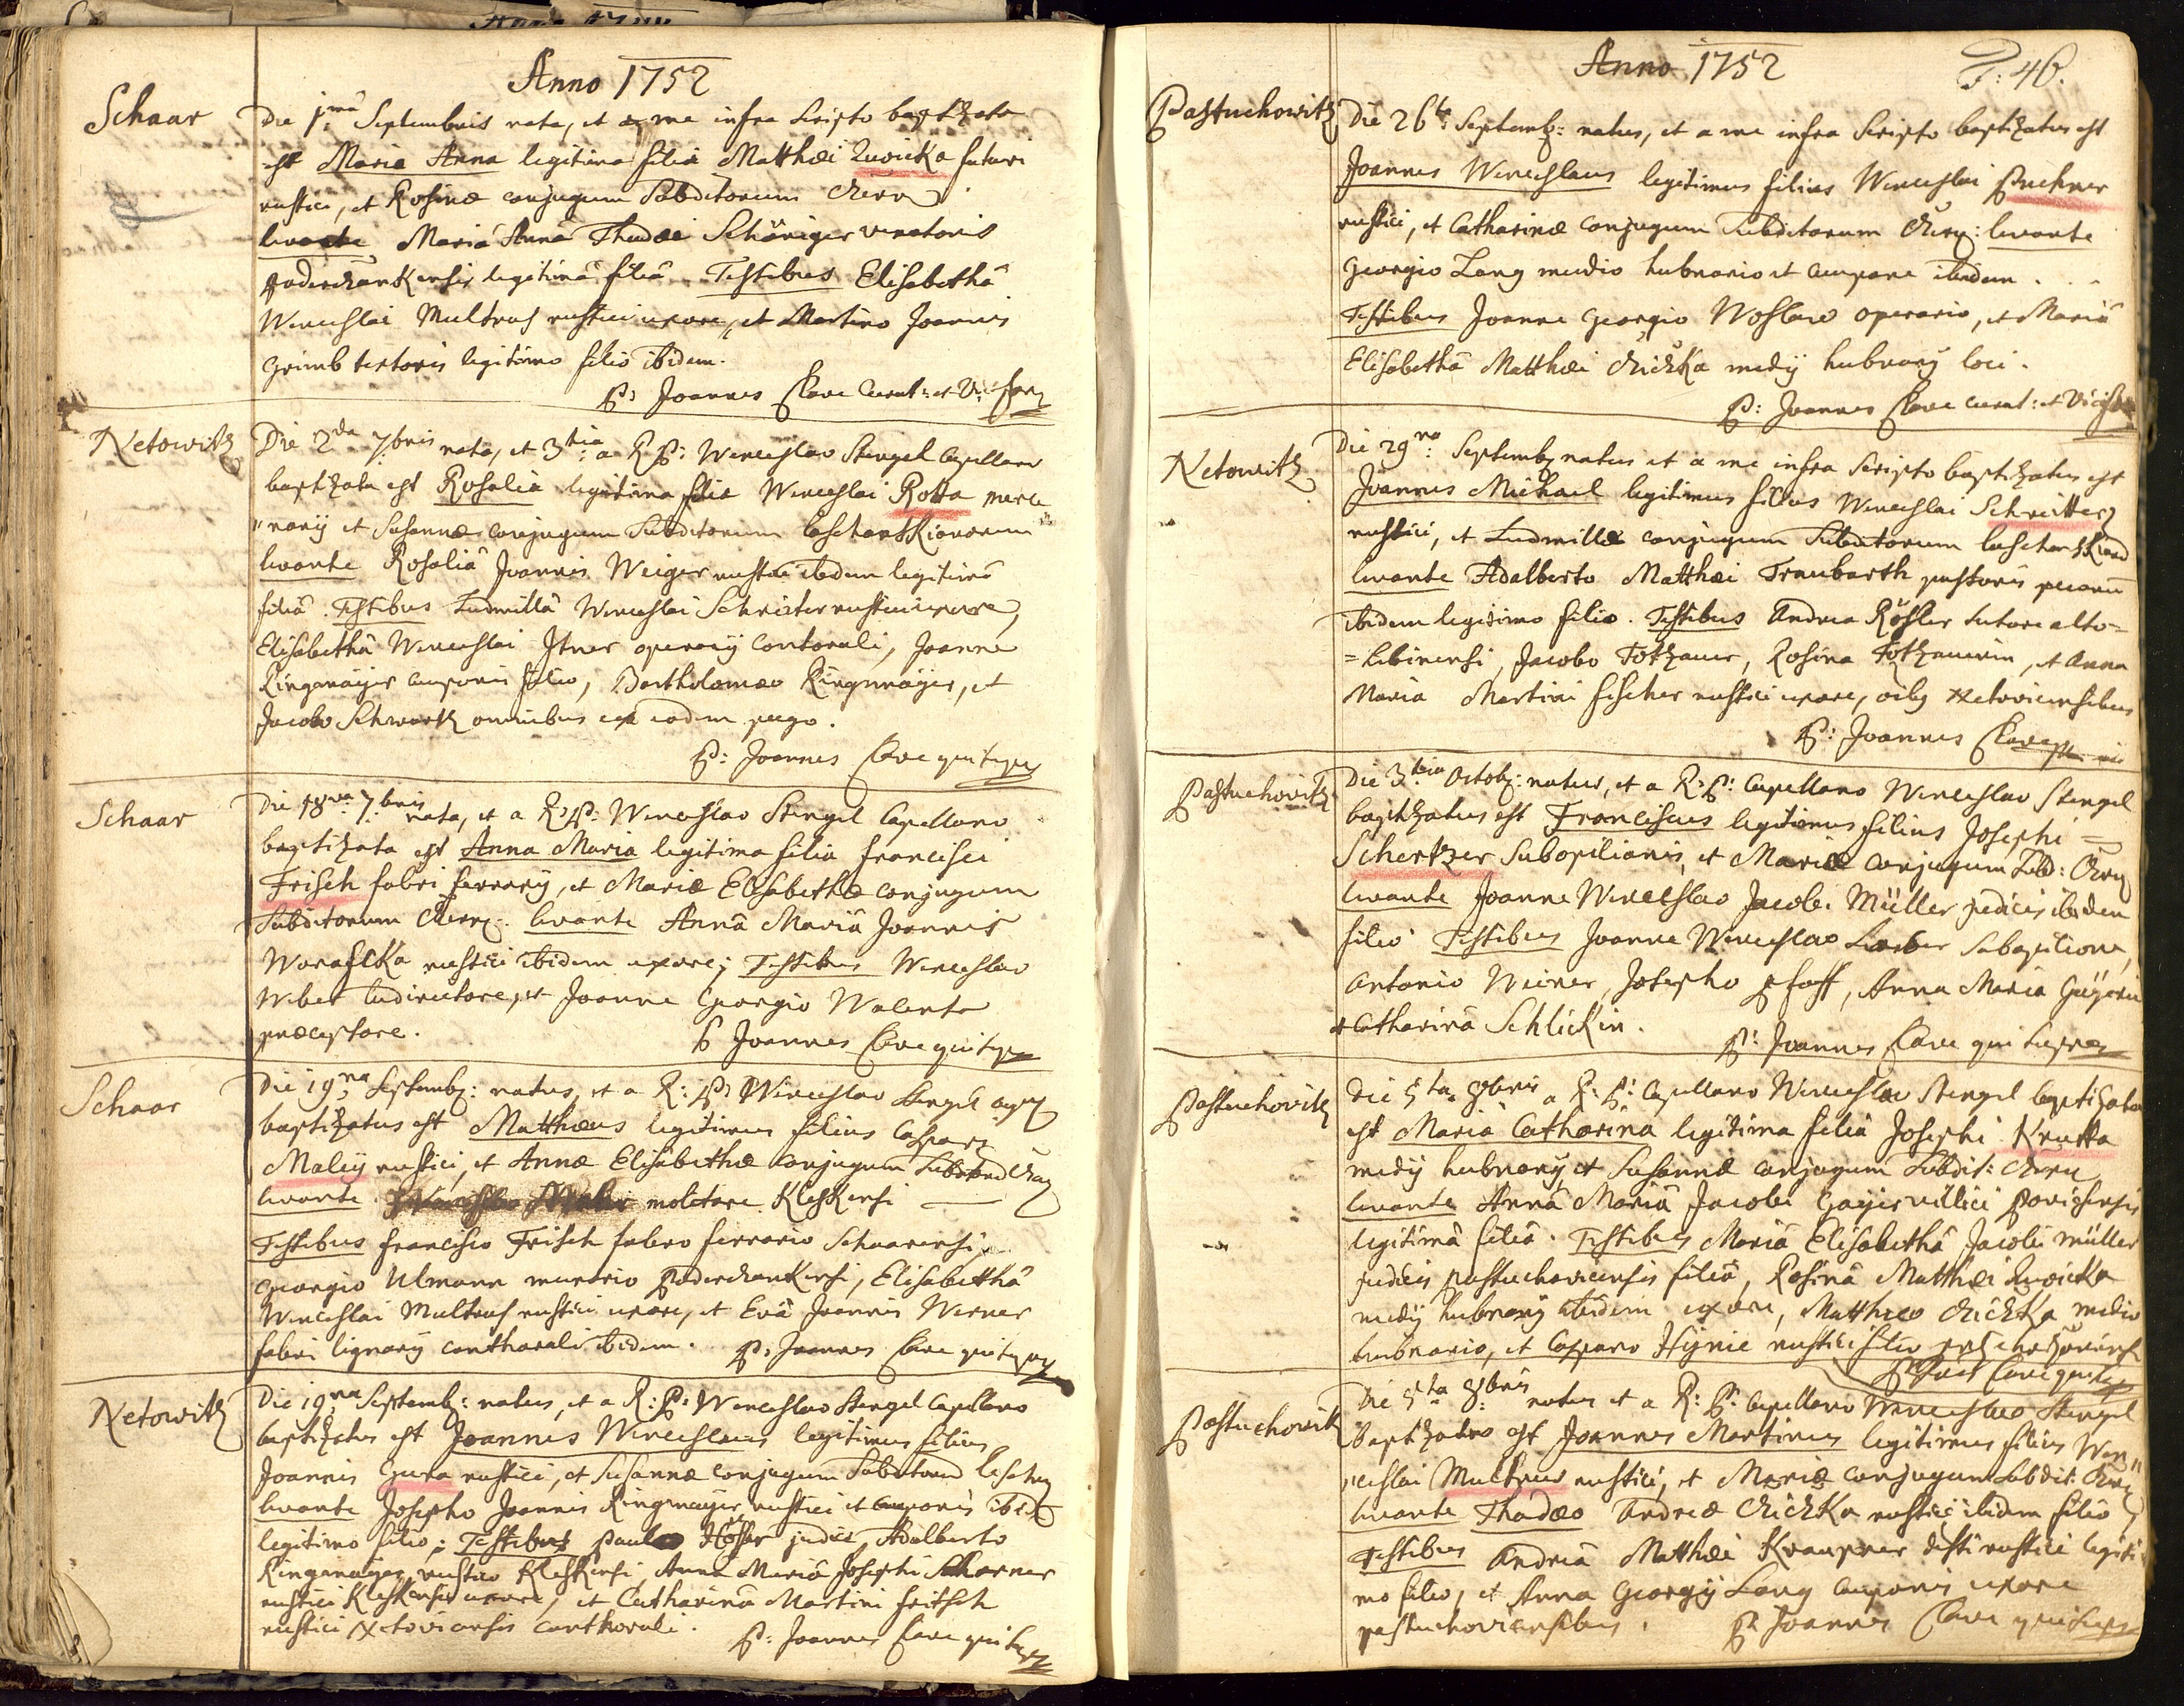 Anno 1752
Schaar
Die 1ma Septembris nata, et a me infra Scripto baptizata
est Maria Anna legitima filia Matthæi Zwicka futuri
rustici, et Rosinæ conjugum Subditorum
levante Mariâ Annâ Thadæi Schöniger venatoris
legitimâ filiâ. Testibus Elisabethâ
Wenceslai Multrus rustici uxore, et Martino Joannis
Grimb textoris legitimo filio ibidem.
P: Joannes Clave Curat: et
Netowitz
Die 2da 7bris nata, et 3tia a R: P: Wenceslao Stengel Capellano
baptizata est Rosalia legitima filia Wenceslai Rotta merce
"narij et Susannæ conjugum Subditorum
levante Rosaliâ Joannis Weiger rustici ibidem legitimâ
filiâ. Testibus Ludmillâ Wenceslai Schreiter rustici uxore,
Elisabethâ Wenceslai Itner operarij contorali, Joanne
Ringmayer cauponis filio, Bartholomæo Ringmayer, et
Jacobo Schwartz omnibus ex eodem pago.
P: Joannes Clave
Schaar
Die 18va 7bris nata, et a R: P: Wenceslao Stengel Capellano
baptizata est Anna Maria legitima filia Francisci
Frisch fabri ferrarij, et Mariæ Elisabethæ conjugum
Subditorum levante Annâ Mariâ Joannis
rustici ibidem uxore; Testibus Wenceslao
Weber ludirectore, et Joanne Georgio Walenta
præceptore.
P Joannes Clave
Schaar
Die 19na Septemb: natus, et a R: P: Wenceslao Stengel
baptizatus est Matthæus legitimus filius Caspari
Malij rustici, et Annæ Elisabethæ conjugum
levante molitore
Testibus Francisco Frisch fabro ferrario Schaarensi,
Georgio Ulmann murario Elisabethâ
Wenceslai Multrus rustici uxore, et Evâ Joannis Werner
fabri lignarij conthorali ibidem. P: Joannes Clave
Netowitz
Die 19na Septemb: natus, et a R: P: Wenceslao Stengel Capellano
baptizatus est Joannes Wenceslaus legitimus filius
Joannis rustici, et Susannæ conjugum
levante Josepho Joannis Ringmayer rustici et cauponis
legitimo filio; Testibus Paulo judice, Adalberto
Ringmayer rustico Annâ Mariâ Josephi Scharner
rustici uxore, et Catharinâ Martini Fritsch
rustici Netoviensis conthorali. P: Joannes Clave
Anno 1752
Pastuchowitz
Die 26ta: Septemb: natus, et a me infra Scripto baptizatus est
Joannes Wenceslaus legitimus filius Wenceslai Puchner
rustici, et Catharinæ conjugum Subditorum levante
Georgio Lang medio hubnario et caupone ibidem.
Testibus Joanne Georgio operario, et Mariâ
Elisabethâ Matthæi medij hubnarij loci.
P: Joannes Clave Curat: et
Netowitz
Die 29na: Septemb natus et a me infra Scripto baptizatus est
Joannes Michael legitimus filius Wenceslai Schreitter
rustici, et Ludmillæ conjugum Subditorum
levante Adalberto Matthæi Traubarth pastoris pecorum
ibidem legitimo filio. Testibus Andrea Rösler sutore alto=
Jacobo Rosina et Anna
Maria Martini Fischer rustici uxore, Netoviensibus
P: Joannes Clave
Pastuchovitz
Die 3tia Octob: natus, et a R: P: Capellano Wenceslao Stengel
baptizatus est Franciscus legitimus filius Josephi =
Schertzer Subopilionis, et Mariæ conjugum Sub:
levante Joanne Wenceslao Jacobi Müller judicis ibidem
filio Testibus Joanne Wenceslao subopilione,
Antonio Weiner, Josepho Pfaff, Anna Maria
et Catharinâ Schlickin.
P: Joannes Clave
Pastuchovitz
Die 5ta 8bris a R: P: Capellano Wenceslao Stengel baptizata
est Maria Catharina legitima filia Josephi Krutta
medij hubnarij, et Susannæ conjugum Subdit:
levante Annâ Mariâ Jacobi Gayer villici
legitimâ filiâ. Testibus Mariâ Elisabethâ Jacobi Müller
judicis Pastuchoviensis filiâ, Rosinâ Matthæi Zwicka
medij hubnarij ibidem uxore, Matthæo medio
hubnario, et Casparo rustici filio
Clave
Pastuchovitz
Die 5ta 8bris natus et a R: P: Capellano Wenceslao Stengel
baptizatus est Joannes Martinus legitimus filius Wen"
"ceslai Multrus rustici, et Mariæ conjugum Subdit:
levante Thadæo Andreæ rustici ibidem filio
Testibus Andreâ Matthæi rustici legiti
mo filio, et Anna Georgij Lang cauponis uxore
pastuchoviensibus. P Joannes Clave